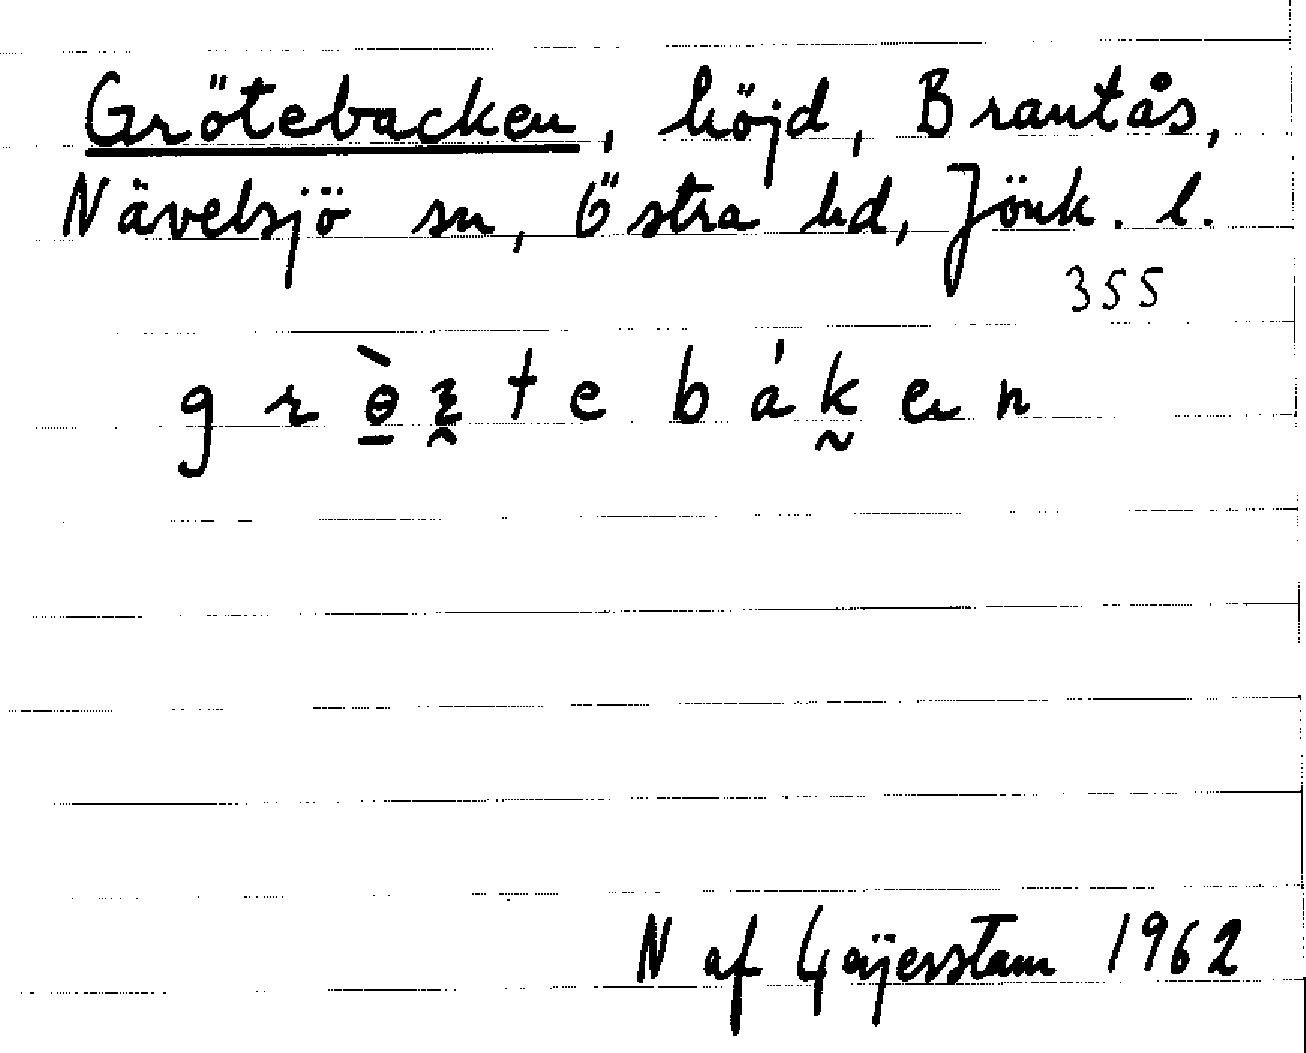 Grötebacken, höjd, Brantås,
Nävelsjö sn, Östra hd, Jönk. l.
355
N af Geijerstam 1962